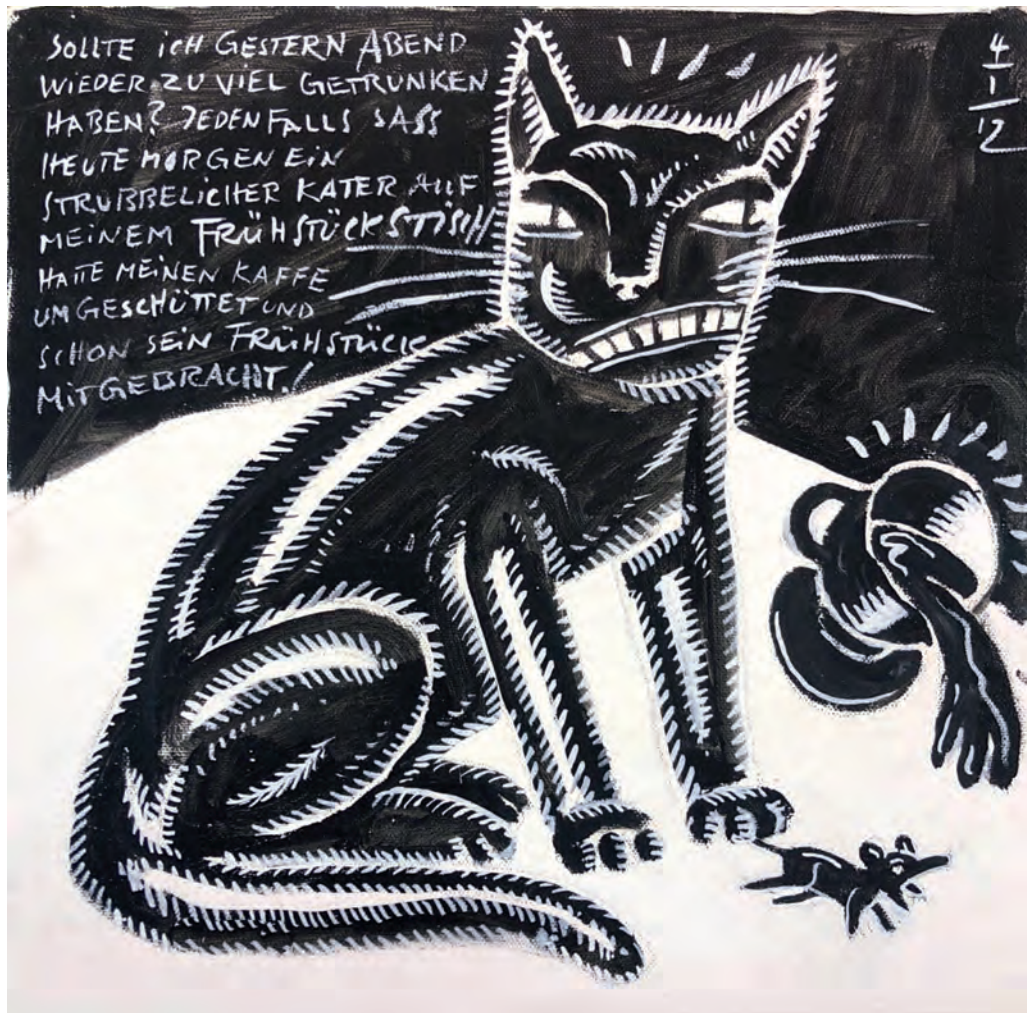 SOLLTE ICH GESTERN ABEND
WIEDER ZU VIEL GETRUNKEN
HABEN? JEDENFALLS SASS
HEUTE MORGEN EIN
STRUBBELICHER KATER AUF
MEINEM FRÜHSTÜCKSTISCH
HATTE MEINEN KAFFE
UMGESCHÜTTET UND
SCHON SEIN FRÜHSTÜCK
MITGEBRACHT!
4
1
12